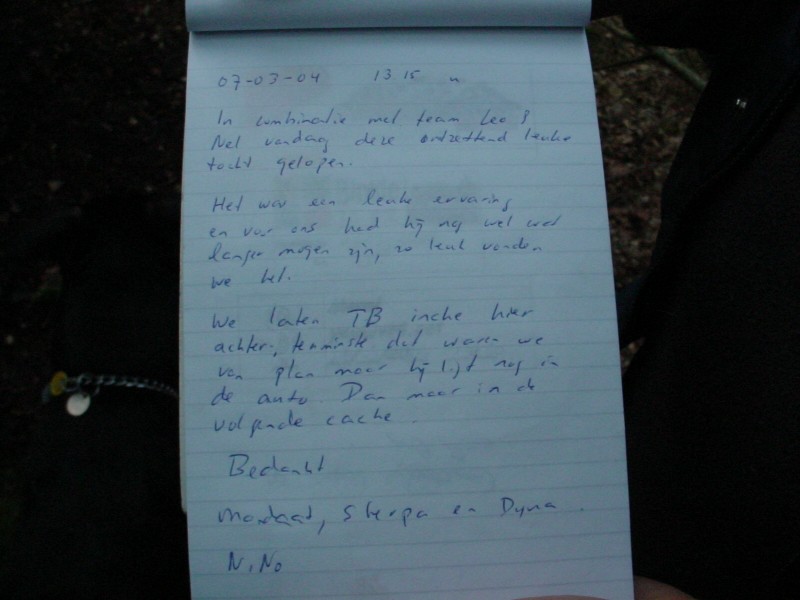 07-03-04 13.15 u
In combinatie met team Leo &
Nel vandaag deze ontzettend leuke
tocht gelopen.
Het was een leuke ervaring
en voor ons had hij nog wel wat
langer mogen zijn, zo leuk vonden
we het.
We laten TB inche hier
achter, tenminste dat waren we
van plan maar hij ligt nog in
de auto. Dan maar in de
volgende cache.
Bedankt
Sherpa en Dyna.
N, No